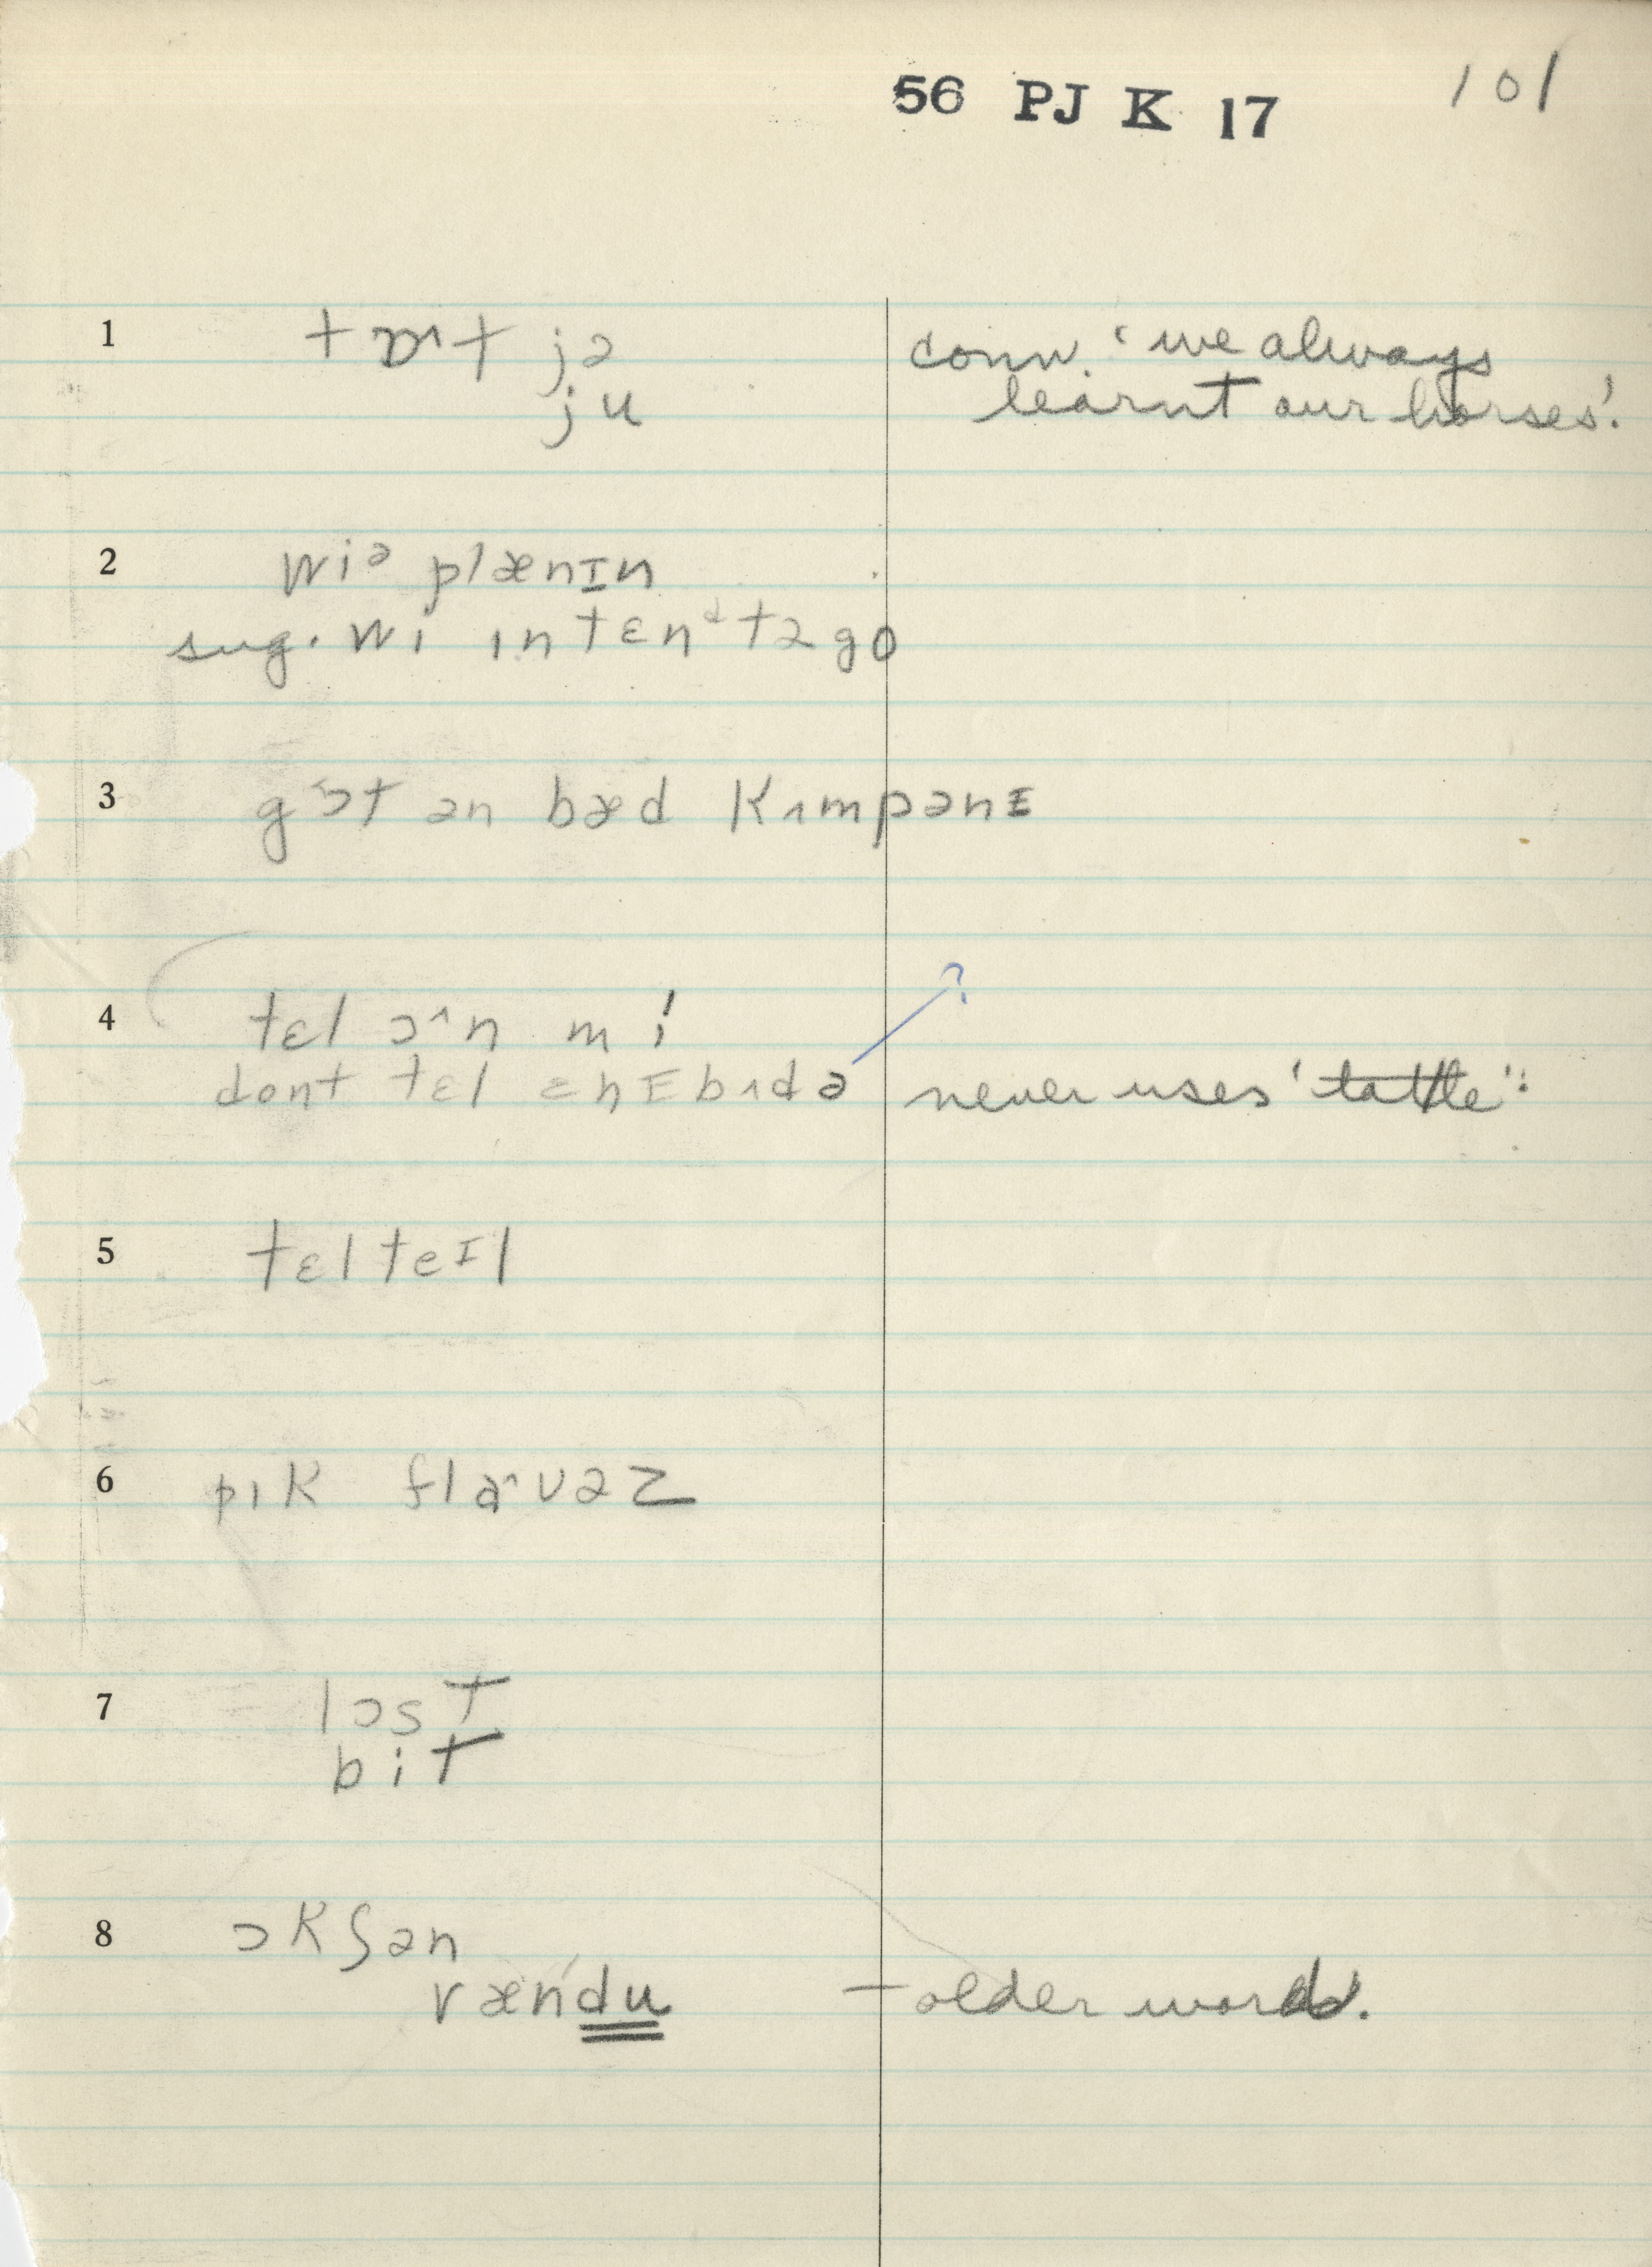 56 PJ K 17 101
1 tɒ^t jə conv. 'we always
ju learnt our horses'.
2 wiᵊ plænɪn
sug. wi ɪntɛnᵈ tə go
3 gɔ^t ən bæd kʌmpənɪ
4 tɛl ɔ^n mí ?
dont tɛl ɛnɪbʌdə never uses 'tattle'.
5 tɛlteɪl
6 pɪk flɑ^vəz
7 lɔst
bit
8 ɔkʃən
vændu – older word.